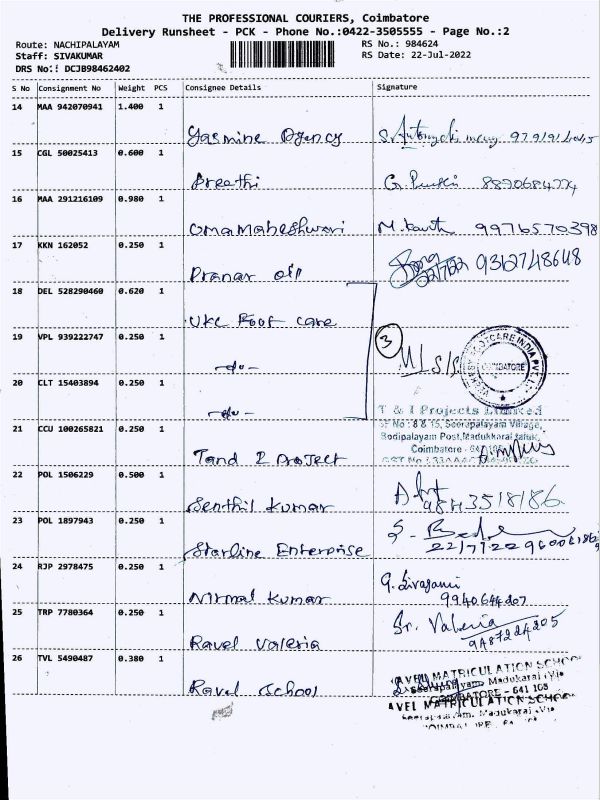 THE PROFESSIONAL COURIERS, Coimbatore
Delivery Runsheet - PCK - Phone No.:0422-3505555 - Page No.:2
Route: NACHIPALAYAM RS No.: 984624
Staff: SIVAKUMAR RS Date: 22-Jul-2022
DRS No.: DCJB98462402
S No Consignment No Weight PCS Consignee Details Signature
14 MAA 942070941 1.400 1
Yasmine Agency
15 CGL 50025413 0.600 1
Preethi
16 MAA 291216109 0.980 1
Umamaheshwari 9976570398
17 KKN 162052 0.250 1
Pranav oil 22/7/22 9362748648
18 DEL 528290460 0.620 1
VKC Foot care
19 VPL 939222747 0.250 1
-do- 3 M/s/s
20 CLT 15403894 0.250 1
-do-
T & I Projects Limited
21 CCU 100265821 0.250 1 SF No : 8 & 15, Seerapalayam Village,
Bodipalayam Post, Madukkarai taluk,
Tand I Project Coimbatore
22 POL 1506229 0.500 1
Senthil Kumar 9843518186
23 POL 1897943 0.250 1
Starline Enterprise 22/7/22
24 RJP 2978475 0.250 1
G. Sivagami
Nirmal Kumar 9940644207
25 TRP 7780364 0.250 1
Sr. Valeria
Ravel Valeria 9487224205
26 TVL 5490487 0.380 1
Ravel School
AVEL MATRICULATION SCHOOL
Seerapalayam, Madukarai (Via)
COIMBATORE - 641 105
AVEL MATRICULATION SCHOOL